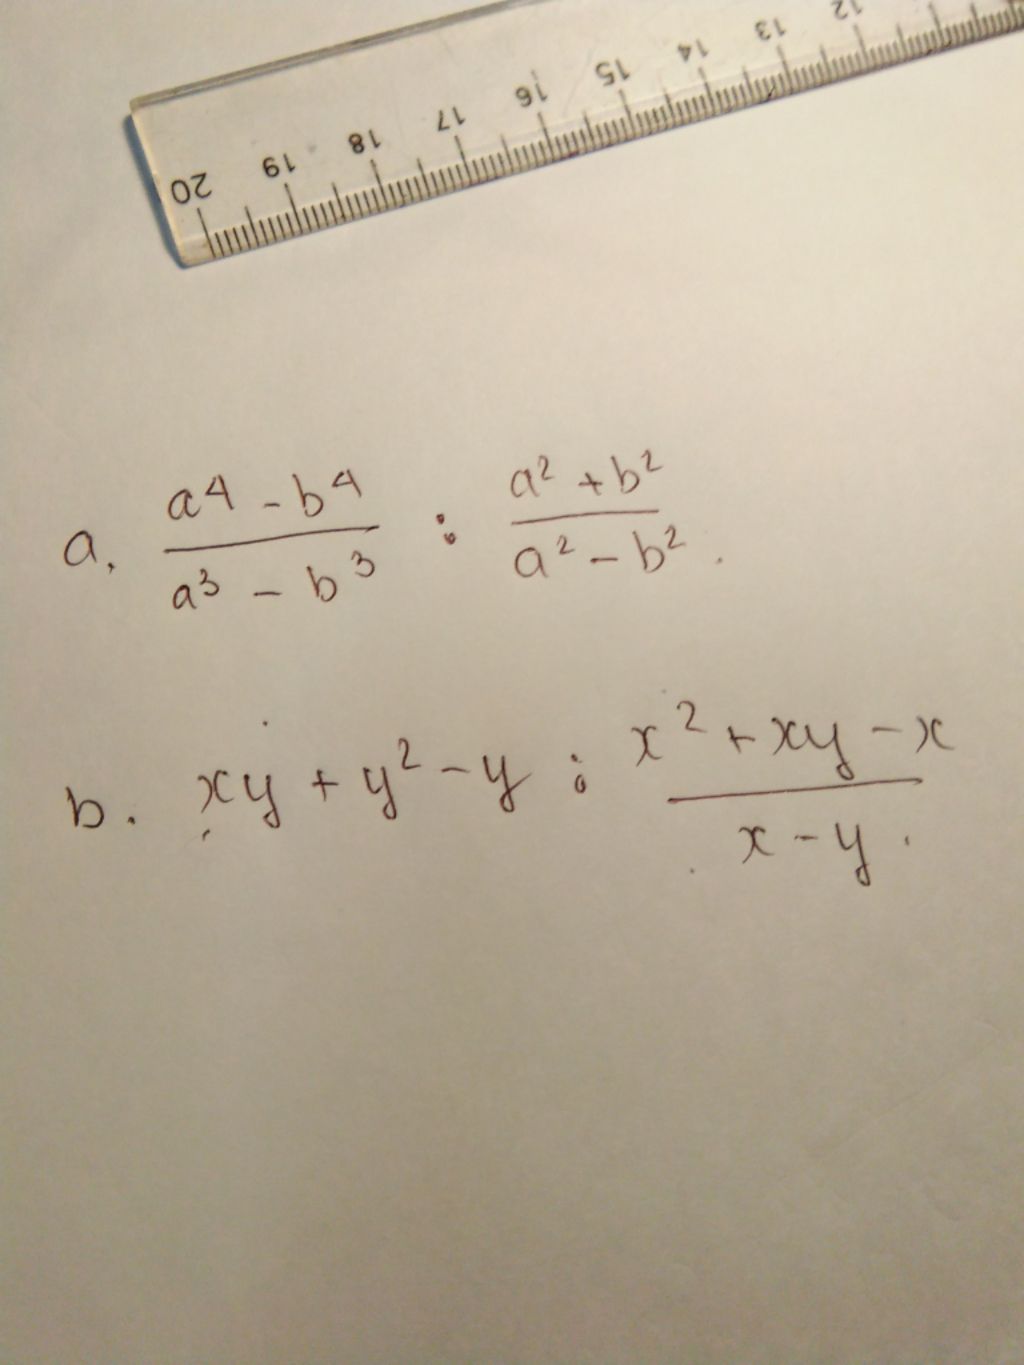 20 19 18 17 16 15 14 13 12
a. \frac{a^4 - b^4}{a^3 - b^3} : \frac{a^2 + b^2}{a^2 - b^2}.
b. xy + y^2 - y : \frac{x^2 + xy - x}{x - y}.